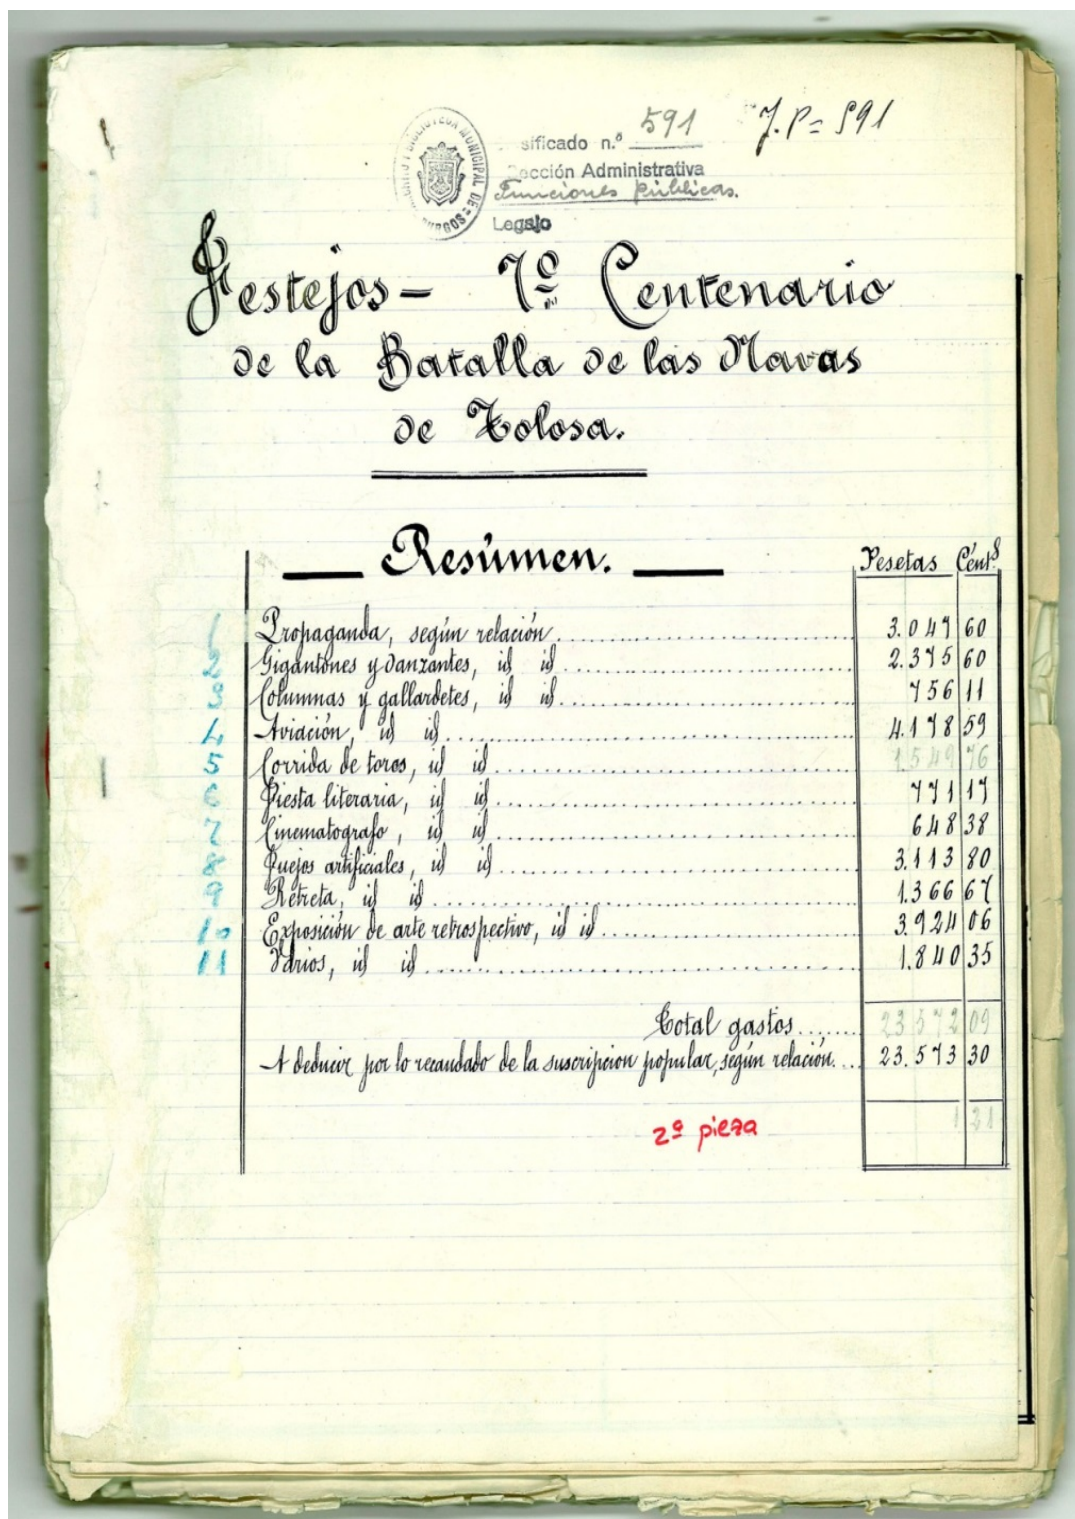 ARCHIVO Y BIBLIOTECA MUNICIPAL DE BURGOS
sificado n.º 591
J.P= 591
ección Administrativa
Funciones públicas.
Legajo
Festejos- 7º Centenario
de la Batalla de las Navas
de Tolosa.
Resúmen.
Pesetas Cent.s
1 Propaganda, según relación 3.047 60
2 Gigantones y danzantes, id id 2.375 60
3 Columnas y gallardetes, id id 756 11
4 Aviación, id id 4.178 59
5 Corrida de toros, id id 1.549 76
6 Fiesta literaria, id id 771 17
7 Cinematografo, id id 648 38
8 Fuejos artificiales, id id 3.113 80
9 Retreta, id id 1.366 67
10 Exposición de arte retrospectivo, id id 3.924 06
11 Varios, id id 1.840 35
Total gastos 23 572 09
A deducir por lo recaudado de la suscripcion popular, según relación. 23.573 30
1 21
2ª pieza